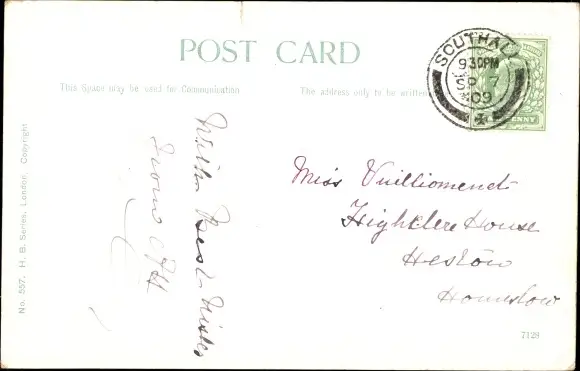 POST CARD
This Space may be used for Communication
The address only to be written
SOUTHALL
9 30PM
SP 7
09
PENNY
With Best Wishes
from
Miss Vuilliomend
Highklere House
Heston
Hounslow
No. 557. H. B. Series, London, Copyright
7129